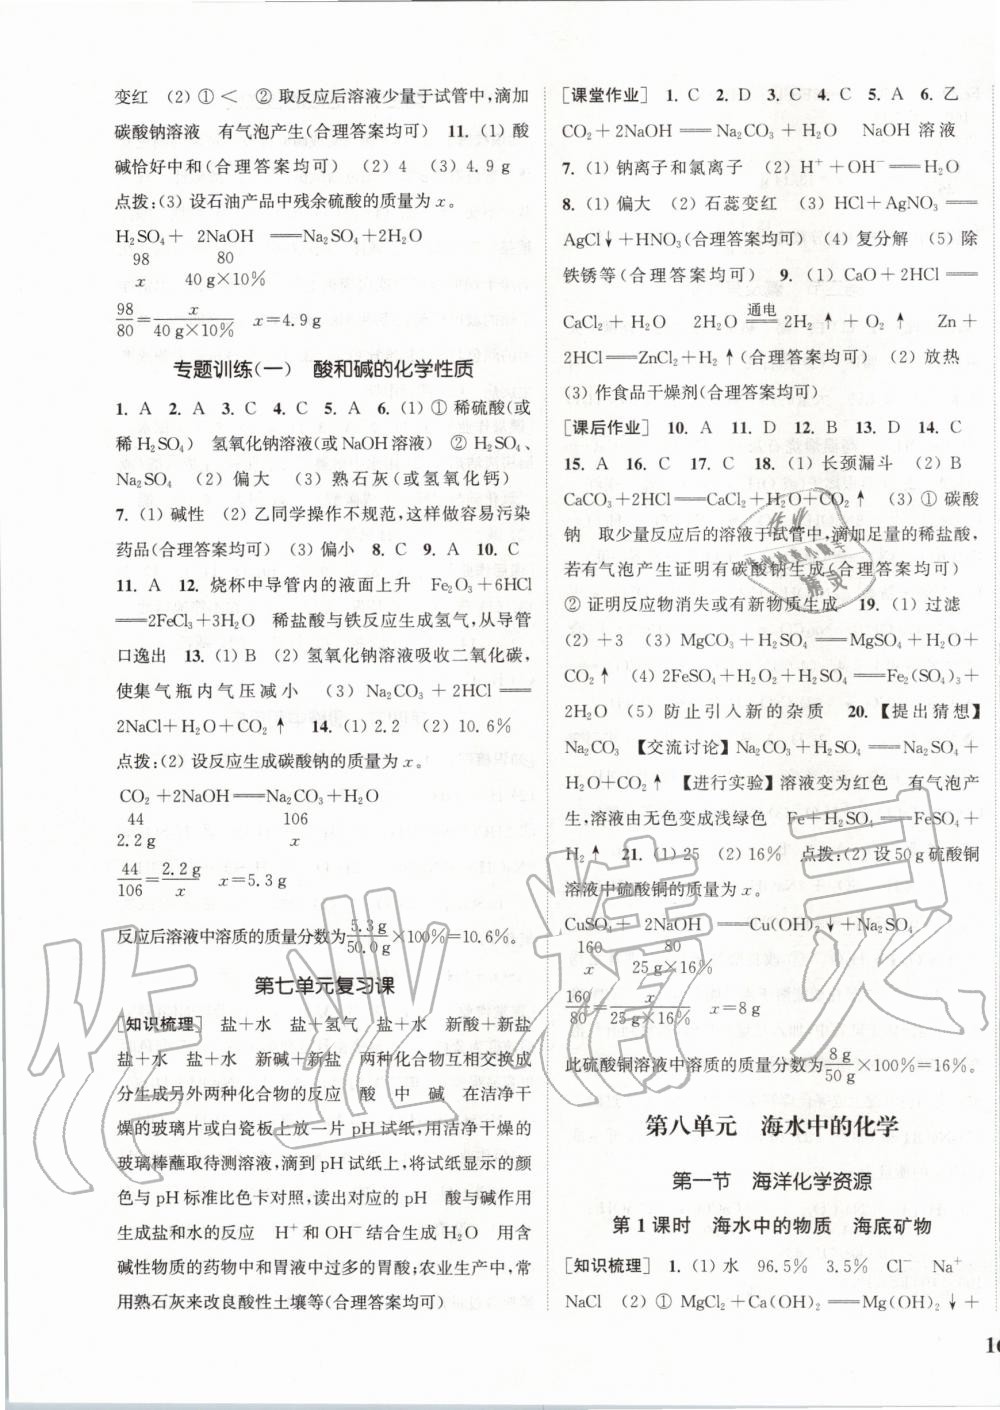 变红　(2) ①＜　② 取反应后溶液少量于试管中,滴加
碳酸钠溶液　有气泡产生(合理答案均可)　11. (1) 酸
碱恰好中和(合理答案均可)　(2) 4　(3) 4.9 g
点拨:(3) 设石油产品中残余硫酸的质量为 x。
H₂SO₄＋ 2NaOH ══Na₂SO₄+2H₂O
98　80
x　40 g×10%
98/80 = x/(40 g×10%)　x=4.9 g
专题训练(一)　酸和碱的化学性质
1. A　2. A　3. C　4. C　5. A　6. (1) ① 稀硫酸(或
稀 H₂SO₄)　氢氧化钠溶液(或 NaOH 溶液)　② H₂SO₄、
Na₂SO₄　(2) 偏大　(3) 熟石灰(或氢氧化钙)
7. (1) 碱性　(2) 乙同学操作不规范,这样做容易污染
药品(合理答案均可)　(3) 偏小　8. C　9. A　10. C
11. A　12. 烧杯中导管内的液面上升　Fe₂O₃+6HCl
══2FeCl₃+3H₂O　稀盐酸与铁反应生成氢气,从导管
口逸出　13. (1) B　(2) 氢氧化钠溶液吸收二氧化碳,
使集气瓶内气压减小　(3) Na₂CO₃+2HCl══
2NaCl+H₂O+CO₂↑　14. (1) 2.2　(2) 10.6%
点拨:(2) 设反应生成碳酸钠的质量为 x。
CO₂ +2NaOH══Na₂CO₃+H₂O
44　106
2.2 g　x
44/106 = 2.2 g/x　x=5.3 g
反应后溶液中溶质的质量分数为 5.3 g/50.0 g ×100%=10.6%。
第七单元复习课
[知识梳理]　盐＋水　盐＋氢气　盐＋水　新酸＋新盐
盐＋水　盐＋水　新碱＋新盐　两种化合物互相交换成
分生成另外两种化合物的反应　酸　中　碱　在洁净干
燥的玻璃片或白瓷板上放一片 pH 试纸,用洁净干燥的
玻璃棒蘸取待测溶液,滴到 pH 试纸上,将试纸显示的颜
色与 pH 标准比色卡对照,读出对应的 pH　酸与碱作用
生成盐和水的反应　H⁺ 和 OH⁻ 结合生成 H₂O　用含
碱性物质的药物中和胃液中过多的胃酸;农业生产中,常
用熟石灰来改良酸性土壤等(合理答案均可)
[课堂作业]　1. C　2. D　3. C　4. C　5. A　6. 乙
CO₂+2NaOH══Na₂CO₃+H₂O　NaOH 溶液
7. (1) 钠离子和氯离子　(2) H⁺+OH⁻══H₂O
8. (1) 偏大　(2) 石蕊变红　(3) HCl+AgNO₃══
AgCl↓+HNO₃(合理答案均可)　(4) 复分解　(5) 除
铁锈等(合理答案均可)　9. (1) CaO+2HCl══
CaCl₂+H₂O　2H₂O 通电══ 2H₂↑+O₂↑　Zn+
2HCl══ZnCl₂+H₂↑(合理答案均可)　(2) 放热
(3) 作食品干燥剂(合理答案均可)
[课后作业]　10. A　11. D　12. B　13. D　14. C
15. A　16. C　17. C　18. (1) 长颈漏斗　(2) B
CaCO₃+2HCl══CaCl₂+H₂O+CO₂↑　(3) ① 碳酸
钠　取少量反应后的溶液于试管中,滴加足量的稀盐酸,
若有气泡产生证明有碳酸钠生成(合理答案均可)
② 证明反应物消失或有新物质生成　19. (1) 过滤
(2) +3　(3) MgCO₃+H₂SO₄══MgSO₄+H₂O+
CO₂↑　(4) 2FeSO₄+H₂O₂+H₂SO₄══Fe₂(SO₄)₃+
2H₂O　(5) 防止引入新的杂质　20.【提出猜想】
Na₂CO₃　【交流讨论】Na₂CO₃+H₂SO₄══Na₂SO₄+
H₂O+CO₂↑　【进行实验】溶液变为红色　有气泡产
生,溶液由无色变成浅绿色　Fe+H₂SO₄══FeSO₄+
H₂↑　21. (1) 25　(2) 16%　点拨:(2) 设 50 g 硫酸铜
溶液中硫酸铜的质量为 x。
CuSO₄+ 2NaOH ══Cu(OH)₂↓+Na₂SO₄
160　80
x　25 g×16%
160/80 = x/(25 g×16%)　x=8 g
此硫酸铜溶液中溶质的质量分数为 8 g/50 g ×100%=16%。
第八单元　海水中的化学
第一节　海洋化学资源
第 1 课时　海水中的物质　海底矿物
[知识梳理]　1. (1) 水　96.5%　3.5%　Cl⁻　Na⁺
NaCl　(2) ① MgCl₂+Ca(OH)₂══Mg(OH)₂↓+
作业精灵